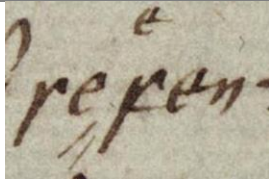 e
reſen-